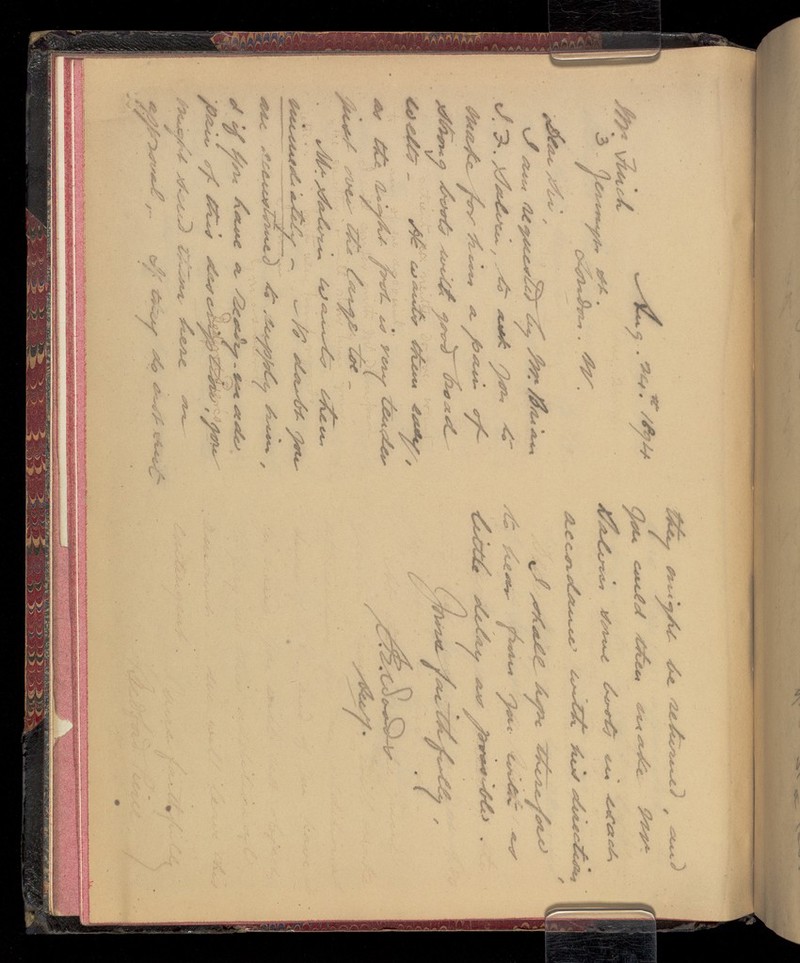 Aug. 24th 1894
Mr. Finch
3 Jermyn St
London. W.
Dear Sir,
I am requested by Mr. Brian
S. F. Salvin, to ask you to
make for him a pair of
strong boots with good broad
welts - He wants them easy,
as the right foot is very tender
just over the large toe -
Mr. Salvin wants them
immediately - No doubt you
are accustomed to supply him,
& if you have a ready-made
pair of this description, you
might send them here on
approval, - If they do not suit
they might be returned, and
you could then make Mr.
Salvin some boots in exact
accordance with his directions,
I shall hope therefore
to hear from you with as
little delay as possible.
Yours faithfully,
Woods